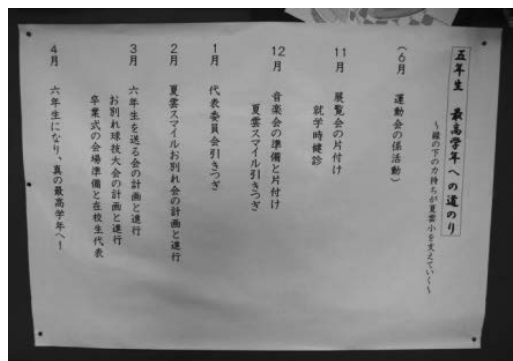 五年生 最高学年への道のり
～縁の下の力持ちが夏雲小を支えていく～
（6月 運動会の係活動）
11月 展覧会の片付け
就学時健診
12月 音楽会の準備と片付け
夏雲スマイル引きつぎ
1月 代表委員会引きつぎ
2月 夏雲スマイルお別れ会の計画と進行
3月 六年生を送る会の計画と進行
お別れ球技大会の計画と進行
卒業式の会場準備と在校生代表
4月 六年生になり、真の最高学年へ！